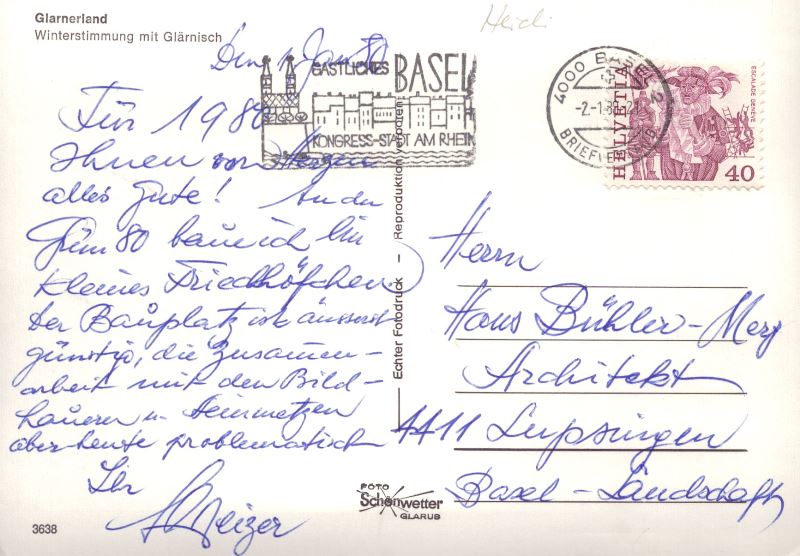 Glarnerland
Winterstimmung mit Glärnisch
Heidi
Den 1. Jan 80
Für 1980
Ihnen von Herzen
alles Gute! An der
Grün 80 baue ich ein
kleines Friedhöfchen.
Der Bauplatz ist äusserst
günstig, die Zusammen-
arbeit mit den Bild-
hauern u. Steinmetzen
aber heute problematisch
Ihr
GASTLICHES BASEL
KONGRESS-STADT AM RHEIN
4000 BASEL 2
-2.-1.8
BRIEFVERSAND
HELVETIA
ESCALADE GENÈVE
40
Echter Fotodruck – Reproduktion verboten
Herrn
Hans Bühler-Merz
Architekt
4411 Lupsingen
Basel-Landschaft
FOTO
Schönwetter
GLARUS
3638